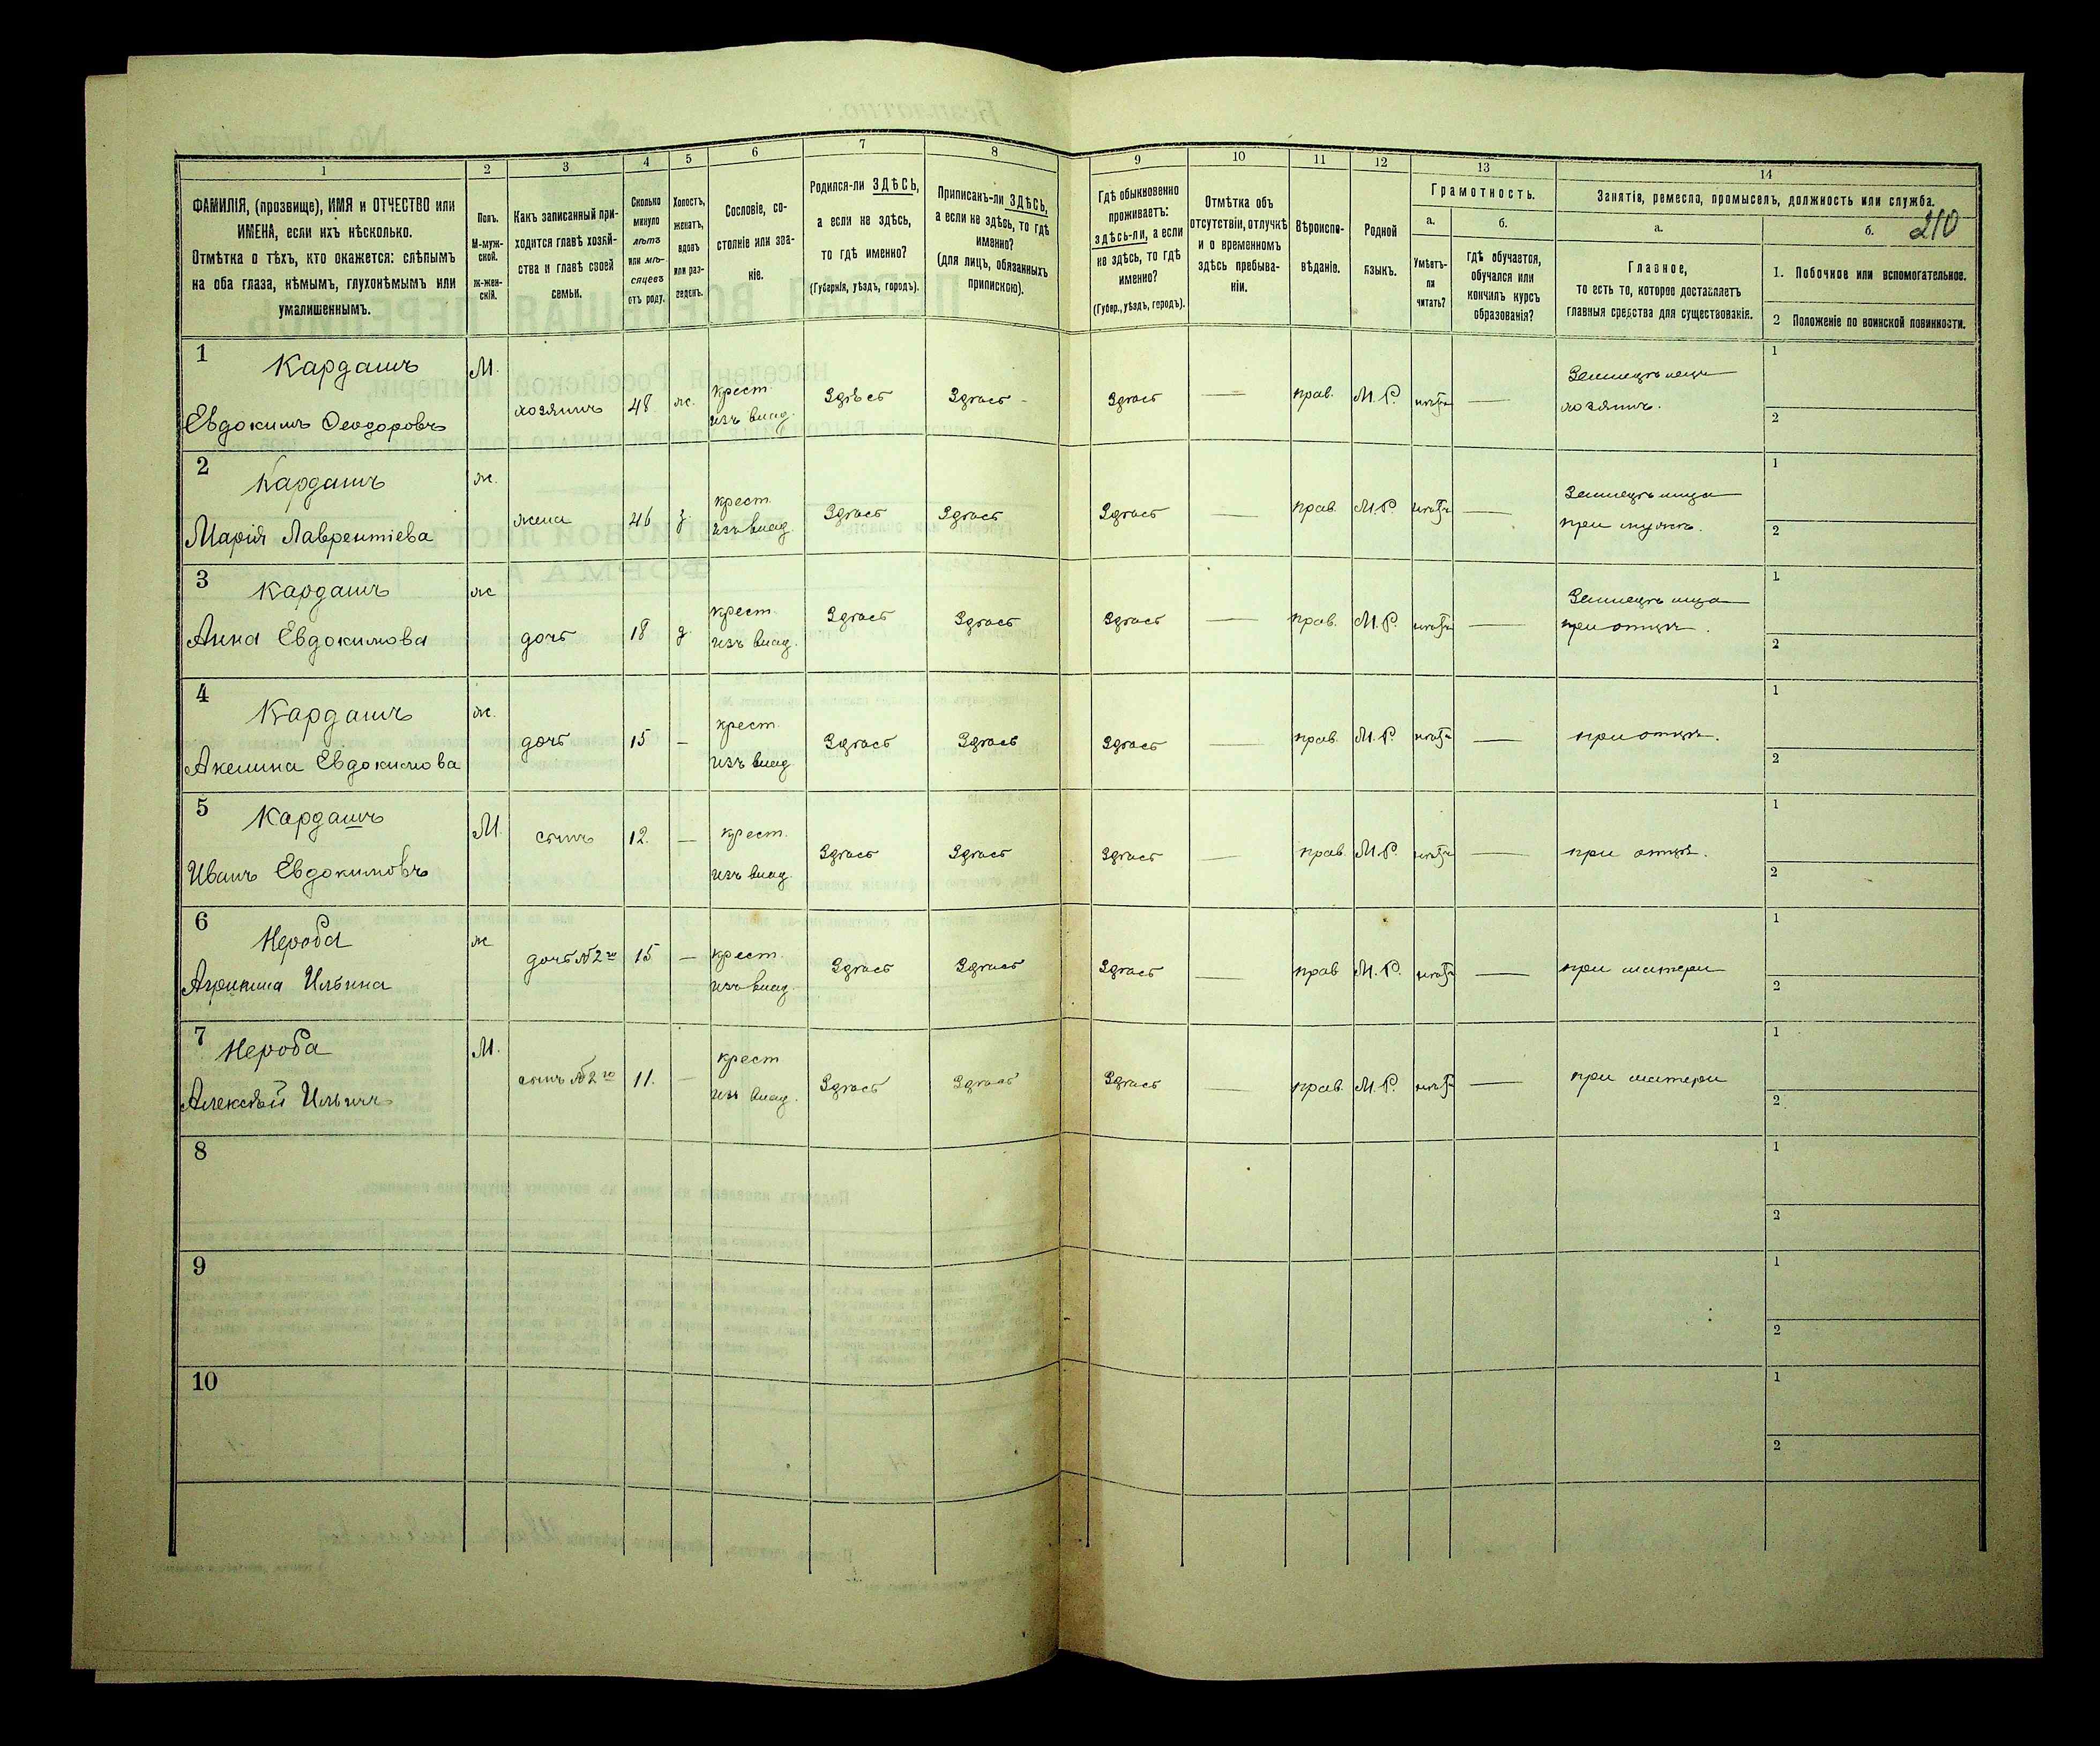 1
2
3
4
5
6
7
8
9
10
11
12
13
14
ФАМИЛІЯ, (прозвище), ИМЯ и ОТЧЕСТВО или
ИМЕНА, если ихъ нѣсколько.
Отмѣтка о тѣхъ, кто окажется: слѣпымъ
на оба глаза, нѣмымъ, глухонѣмымъ или
умалишеннымъ.
Полъ.
М-муж-
ской.
Ж-жен-
скій.
Какъ записанный при-
ходится главѣ хозяй-
ства и главѣ своей
семьи.
Сколько
минуло
лѣтъ
или мѣ-
сяцевъ
отъ роду.
Холостъ,
женатъ,
вдовъ
или раз-
веденъ.
Сословіе, со-
стояніе или зва-
ніе.
Родился-ли ЗДѢСЬ,
а если не здѣсь,
то гдѣ именно?
(Губернія, уѣздъ, городъ).
Приписанъ-ли ЗДѢСЬ,
а если не здѣсь, то гдѣ
именно?
(для лицъ, обязанныхъ
припискою).
Гдѣ обыкновенно
проживаетъ:
здѣсь-ли, а если
не здѣсь, то гдѣ
именно?
(Губер., уѣздъ, городъ).
Отмѣтка объ
отсутствіи, отлучкѣ
и о временномъ
здѣсь пребыва-
ніи.
Вѣроиспо-
вѣданіе.
Родной
языкъ.
Грамотность.
а.
Умѣетъ-
ли
читать?
б.
гдѣ обучается,
обучался или
кончилъ курсъ
образованія?
Занятія, ремесло, промыселъ, должность или служба.
210
а.
Главное,
то есть то, которое доставляетъ
главныя средства для существованія.
б.
1. Побочное или вспомогательное.
2 Положеніе по воинской повинности.
1 Кардашъ
Евдокимъ Ѳеодоровъ
М. хозяинъ 48 ж. крест.
изъ влад.
Здѣсь Здѣсь Здѣсь — прав. М. Р. нѣтъ —
Земледѣлецъ
хозяинъ.
1
2
2 Кардашъ
Марія Лаврентіева
ж. жена 46 з. крест.
изъ влад.
Здѣсь Здѣсь Здѣсь — прав. М. Р. нѣтъ —
при мужѣ.
1
2
3 Кардашъ
Анна Евдокимова
ж дочь 18 д. крест.
изъ влад.
Здѣсь Здѣсь Здѣсь — прав. М. Р. нѣтъ —
при отцѣ.
1
2
4 Кардашъ
Акелина Евдокимова
ж. дочь 15 — крест.
изъ влад
Здѣсь Здѣсь Здѣсь — прав. М. Р. нѣтъ — при отцѣ.
1
2
5 Кардашъ
Иванъ Евдокимовъ
М. сынъ 12. — крест.
изъ влад.
Здѣсь Здѣсь Здѣсь — прав. М. Р. нѣтъ — при отцѣ.
1
2
6 Нероба
Агрипина Ильина
ж дочь №2го 15 — крест.
изъ влад.
Здѣсь Здѣсь Здѣсь — прав М. Р. нѣтъ — при матери
1
2
7 Нероба
Алексѣй Ильичъ
М. сынъ №2го 11. — крест
изъ влад.
Здѣсь Здѣсь Здѣсь — прав. М. Р. нѣтъ — при матери
1
2
8
1
2
9
1
2
10
1
2